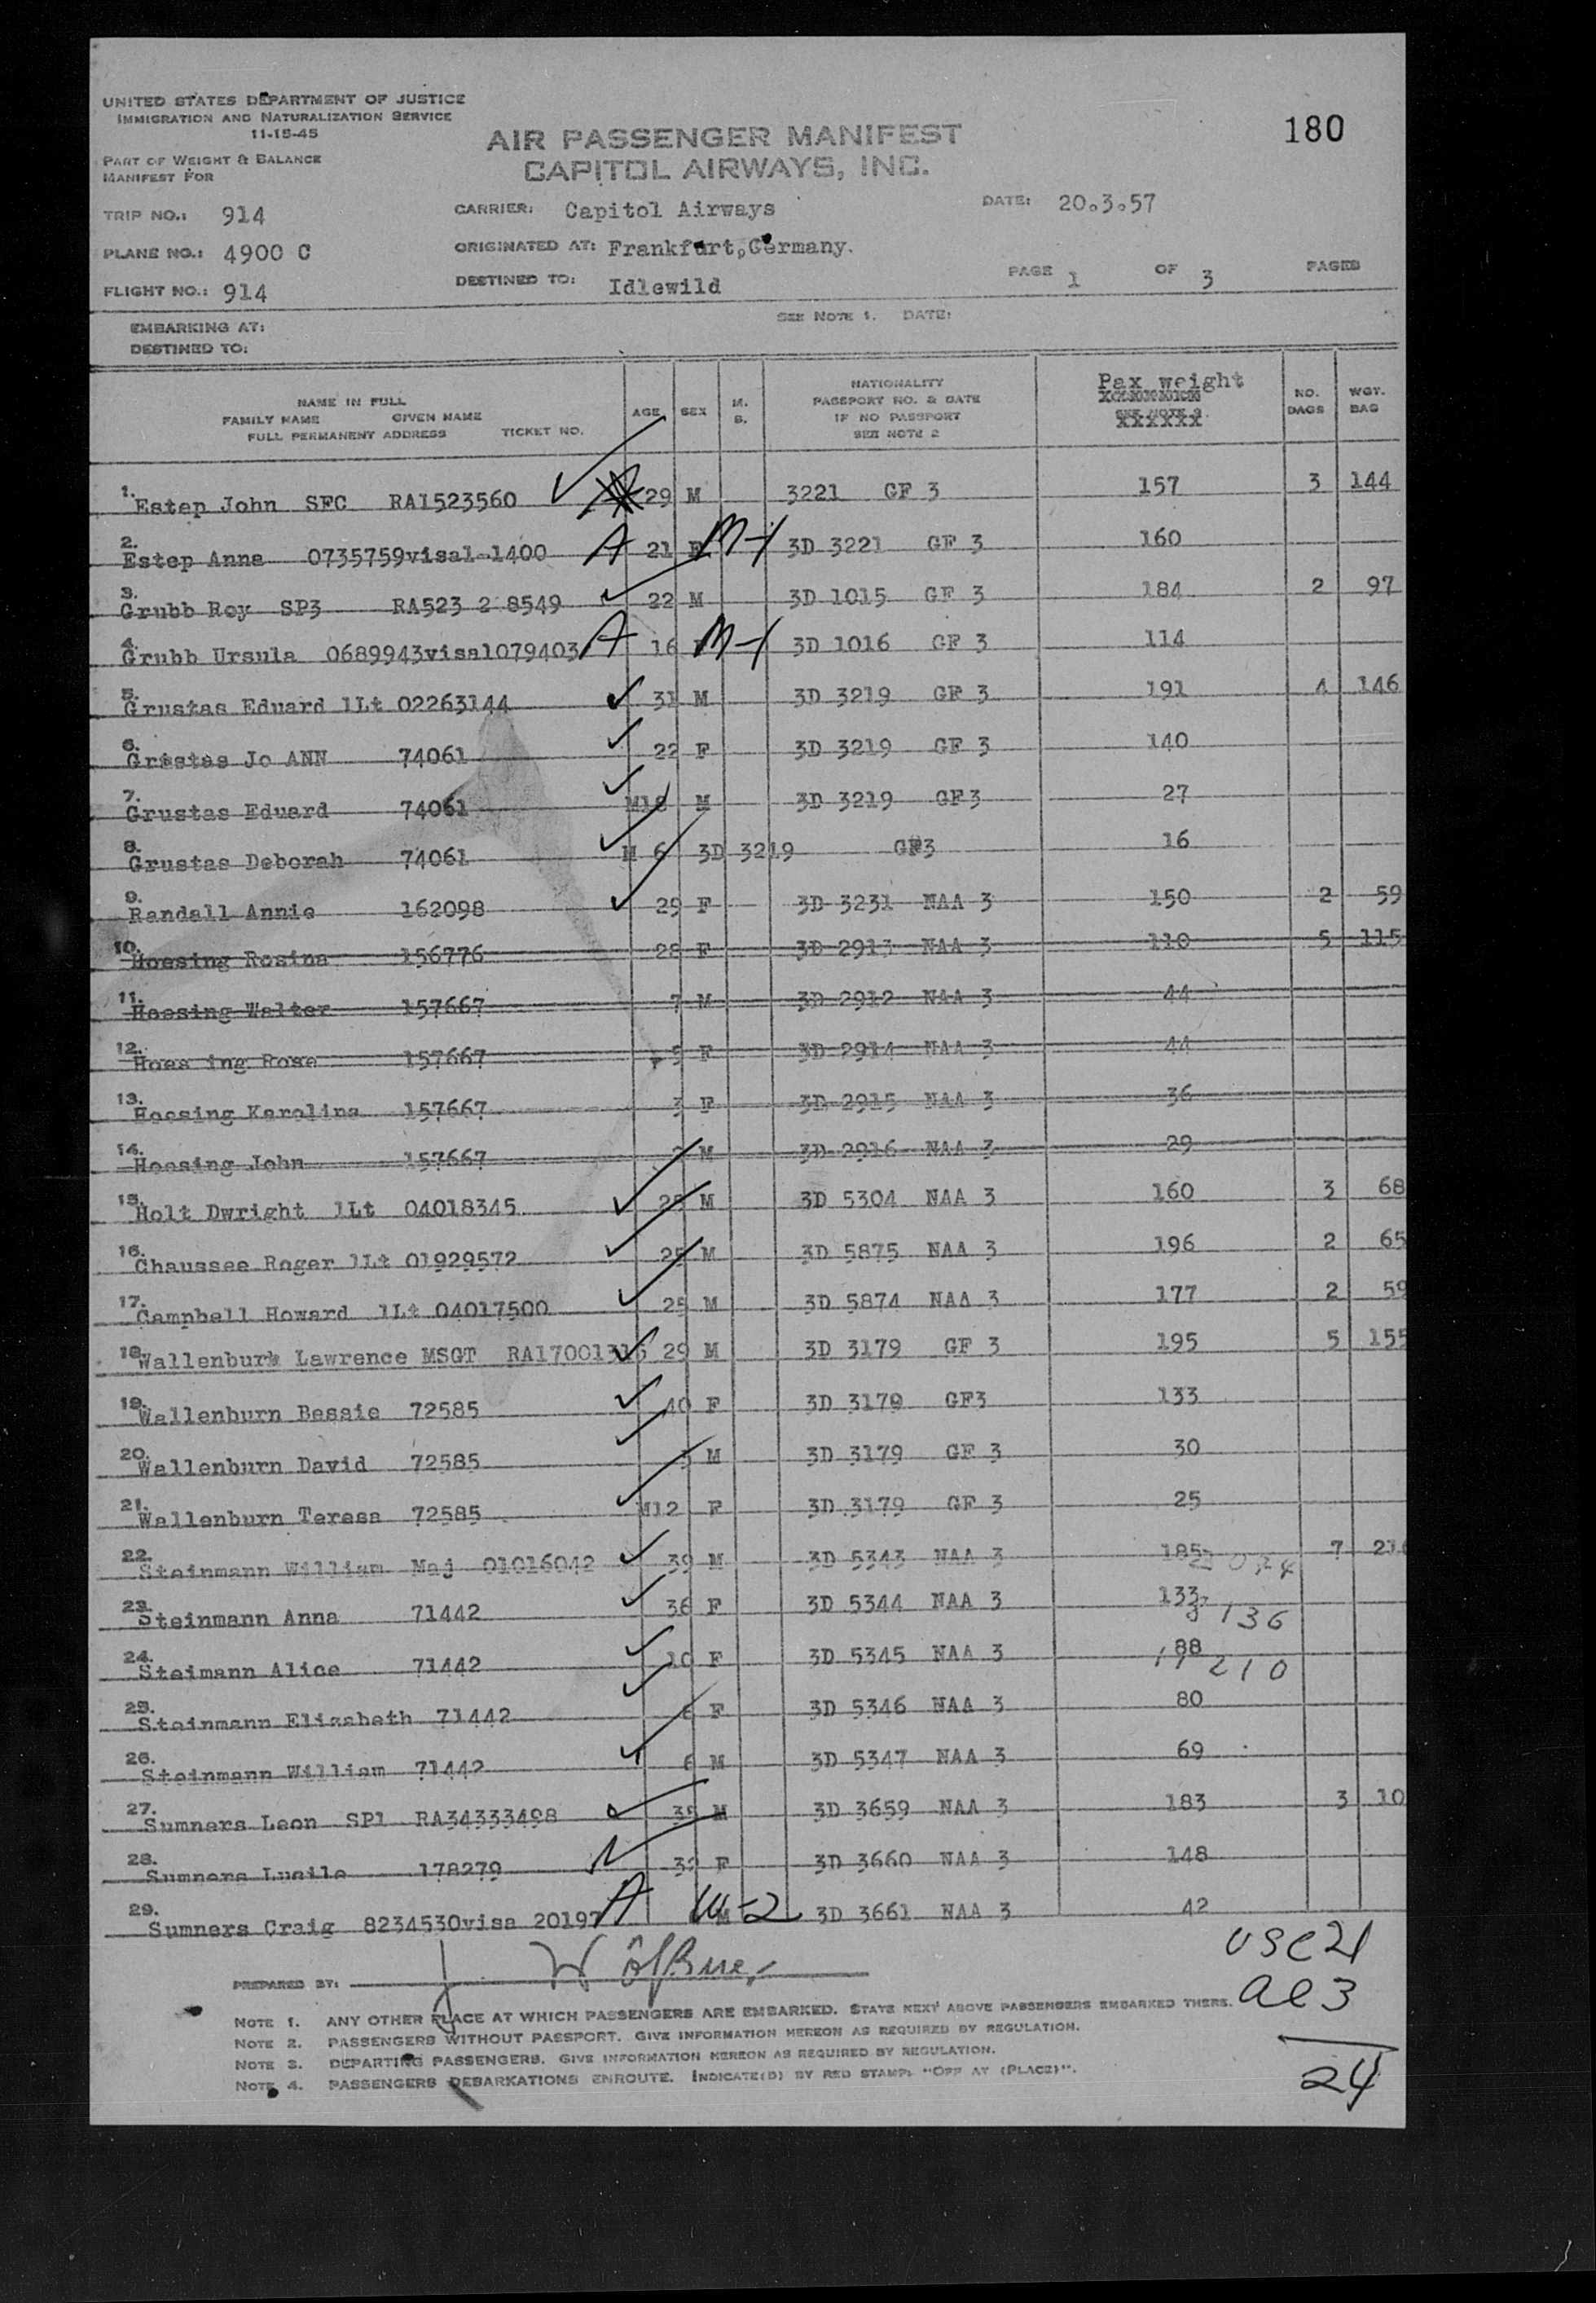 UNITED STATES DEPARTMENT OF JUSTICE
IMMIGRATION AND NATURALIZATION SERVICE
11-15-45
PART OF WEIGHT & BALANCE
MANIFEST FOR
AIR PASSENGER MANIFEST
CAPITOL AIRWAYS, INC.
180
TRIP NO.: 914 CARRIER: Capitol Airways DATE: 20.3.57
PLANE NO.: 4900 C ORIGINATED AT: Frankfurt,Germany.
FLIGHT NO.: 914 DESTINED TO: Idlewild PAGE 1 OF 3 PAGES
EMBARKING AT: SEE NOTE 1. DATE:
DESTINED TO:
NAME IN FULL
FAMILY NAME GIVEN NAME
FULL PERMANENT ADDRESS TICKET NO.
AGE SEX M. S.
NATIONALITY
PASSPORT NO. & DATE
IF NO PASSPORT
SEE NOTE 2
Pax weight
SEE NOTE 3
XXXXXX
NO. BAGS
WGT. BAG
1. Estep John SFC RA1523560 29 M 3221 GF 3 157 3 144
2. Estep Anna 0735759visa1-1400 A 21 F M-1 3D 3221 GF 3 160
3. Grubb Roy SP3 RA523 2 8549 22 M 3D 1015 GF 3 184 2 97
4. Grubb Ursula 0689943visa1079403 A 16 M-1 3D 1016 GF 3 114
5. Grustas Eduard 1Lt 02263144 31 M 3D 3219 GF 3 191 4 146
6. Grastas Jo ANN 74061 22 F 3D 3219 GF 3 140
7. Grustas Eduard 74061 M18 M 3D 3219 GF3 27
8. Grustas Deborah 74061 M 6 3D 3219 GF3 16
9. Randall Annie 162098 29 F 3D 3231 NAA 3 150 2 59
10. Hoesing Rosina 156776 28 F 3D 2913 NAA 3 110 5 115
11. Hoesing Walter 157667 7 M 3D 2912 NAA 3 44
12. Hoes ing Rose 157667 5 F 3D 2914 NAA 3 44
13. Hoesing Karolina 157667 3 F 3D 2915 NAA 3 36
14. Hoesing John 157667 M 3D 2916 NAA 3 29
15. Holt Dwright 1Lt 04018345 M 3D 5304 NAA 3 160 3 68
16. Chaussee Roger 1Lt 01929572 25 M 3D 5875 NAA 3 196 2 65
17. Campbell Howard 1Lt 04017500 25 M 3D 5874 NAA 3 177 2 59
18. Wallenburk Lawrence MSGT RA17001315 29 M 3D 3179 GF 3 195 5 155
19. Wallenburn Bessie 72585 40 F 3D 3179 GF3 133
20. Wallenburn David 72585 M 3D 3179 GF 3 30
21. Wallenburn Teresa 72585 M12 F 3D 3179 GF 3 25
22. Steinmann William Maj 01016042 39 M 3D 5343 NAA 3 185 7
23. Steinmann Anna 71442 36 F 3D 5344 NAA 3 133 136
24. Steimann Alice 71442 10 F 3D 5345 NAA 3 88 210
25. Steinmann Elizabeth 71442 8 F 3D 5346 NAA 3 80
26. Steinmann William 71442 6 M 3D 5347 NAA 3 69
27. Sumners Leon SP1 RA34333498 35 M 3D 3659 NAA 3 183 3 10
28. Sumners Lucile 178279 32 F 3D 3660 NAA 3 148
29. Sumners Craig 8234530visa 20197 A M 3D 3661 NAA 3 42
USC21
PREPARED BY:
al 3
NOTE 1. ANY OTHER PLACE AT WHICH PASSENGERS ARE EMBARKED. STATE NEXT ABOVE PASSENGERS EMBARKED THERE.
NOTE 2. PASSENGERS WITHOUT PASSPORT. GIVE INFORMATION HEREON AS REQUIRED BY REGULATION.
NOTE 3. DEPARTING PASSENGERS. GIVE INFORMATION HEREON AS REQUIRED BY REGULATION.
NOTE 4. PASSENGERS DEBARKATIONS ENROUTE. INDICATE(D) BY RED STAMP: "OFF AT (PLACE)".
24